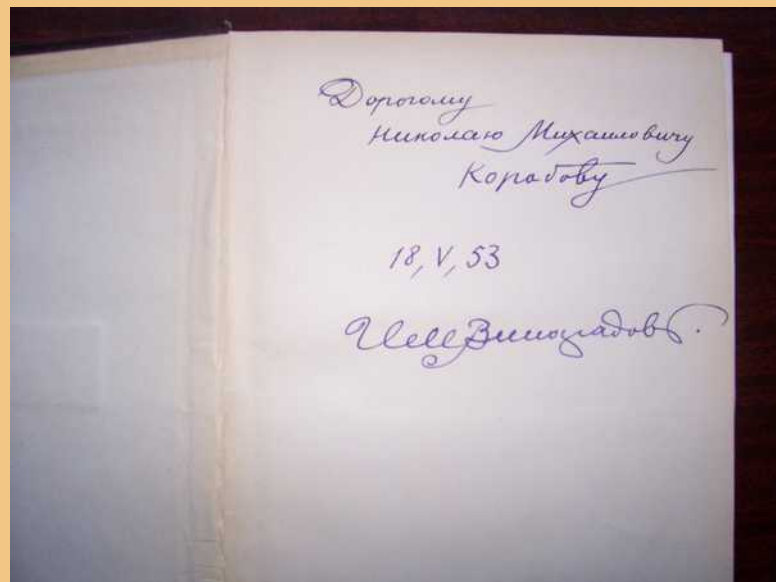 Дорогому
Николаю Михайловичу
Коробову
18, V, 53
ИМВиноградов.